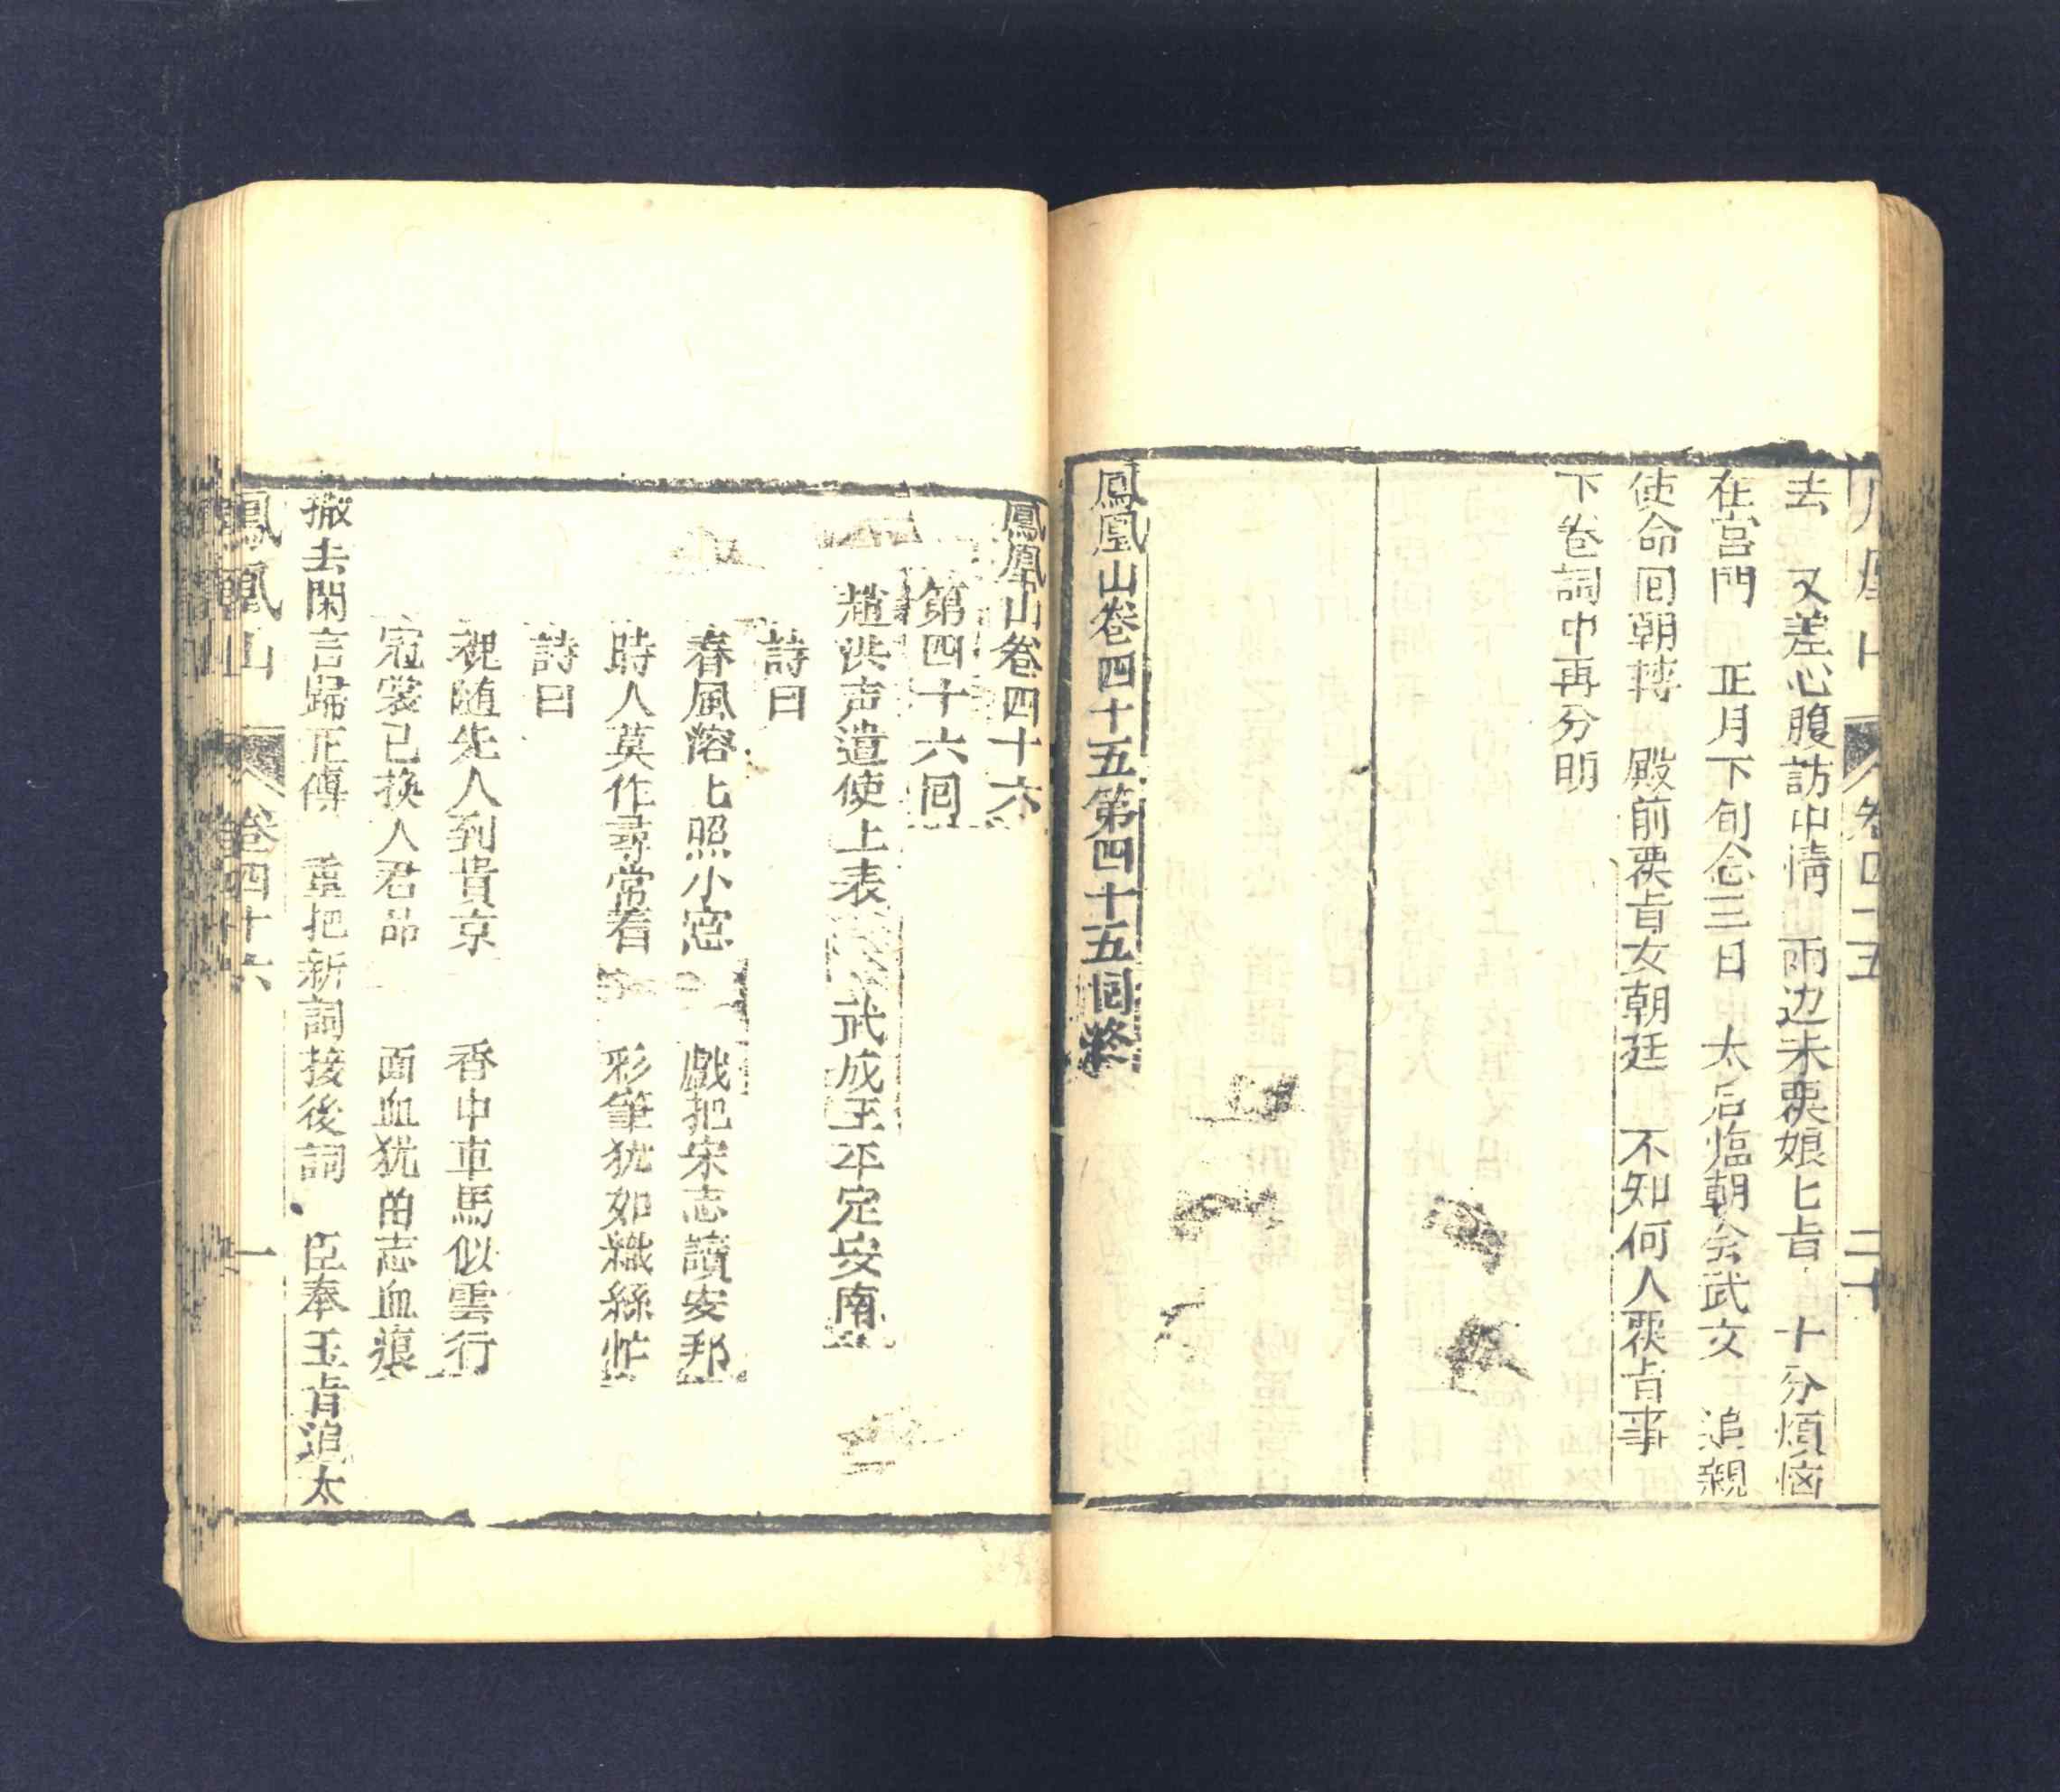 去　又差心腹訪中情　兩边未褁娘匕㫖　十分煩悩
在宫門　正月下旬念三日　太后临朝会武文　追親
使命回朝轉　殿前褁㫖女朝廷　不知何人褁㫖事
下卷詞中再分明
鳳凰山卷四十五第四十五囘終
卷四十五
二十
鳳凰山卷四十六
第四十六囘
趙洪声遣使上表　武成王平定安南
詩曰
春風溶匕照小窓　戲把宋志讀安邦
時人莫作尋常看　彩筆犹如織絲忙
詩曰
親随先人到貴京　香中車馬似雲行
冠裳已换人君品　面血犹㽕志血痕
撤去閑言歸正傳　重把新詞接後詞　臣奉玉㫖追太
鳳凰山
卷四十六
一